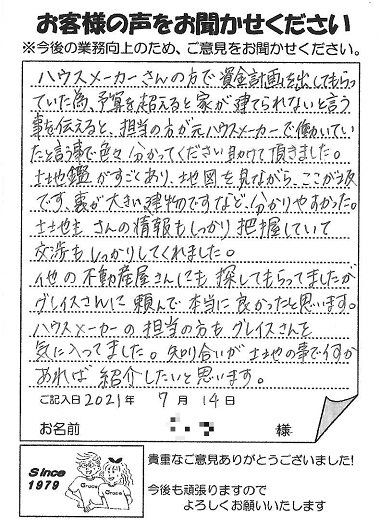 お客様の声をお聞かせください
※今後の業務向上のため、ご意見をお聞かせください。
ハウスメーカーさんの方で資金計画を出してもらっ
ていた為、予算を超えると家が建てられないと言う
事を伝えると、担当の方が元ハウスメーカーで働いてい
たと言う事で色々分かってくださり助けて頂きました。
土地鑑がすごくあり、地図を見ながら、ここが坂
です、裏が大きい建物ですなど、分かりやすかった。
土地主さんの情報もしっかり把握していて
交渉もしっかりしてくれました。
他の不動産屋さんにも探してもらってましたが
グレイスさんに頼んで本当に良かったと思います。
ハウスメーカーの担当の方もグレイスさんを
気に入ってました。知り合いが土地の事で何か
あれば紹介したいと思います。
ご記入日2021年 7月14日
お名前 様
Since
1979
Grace
Grace
貴重なご意見ありがとうございました!
今後も頑張りますので
よろしくお願いいたします